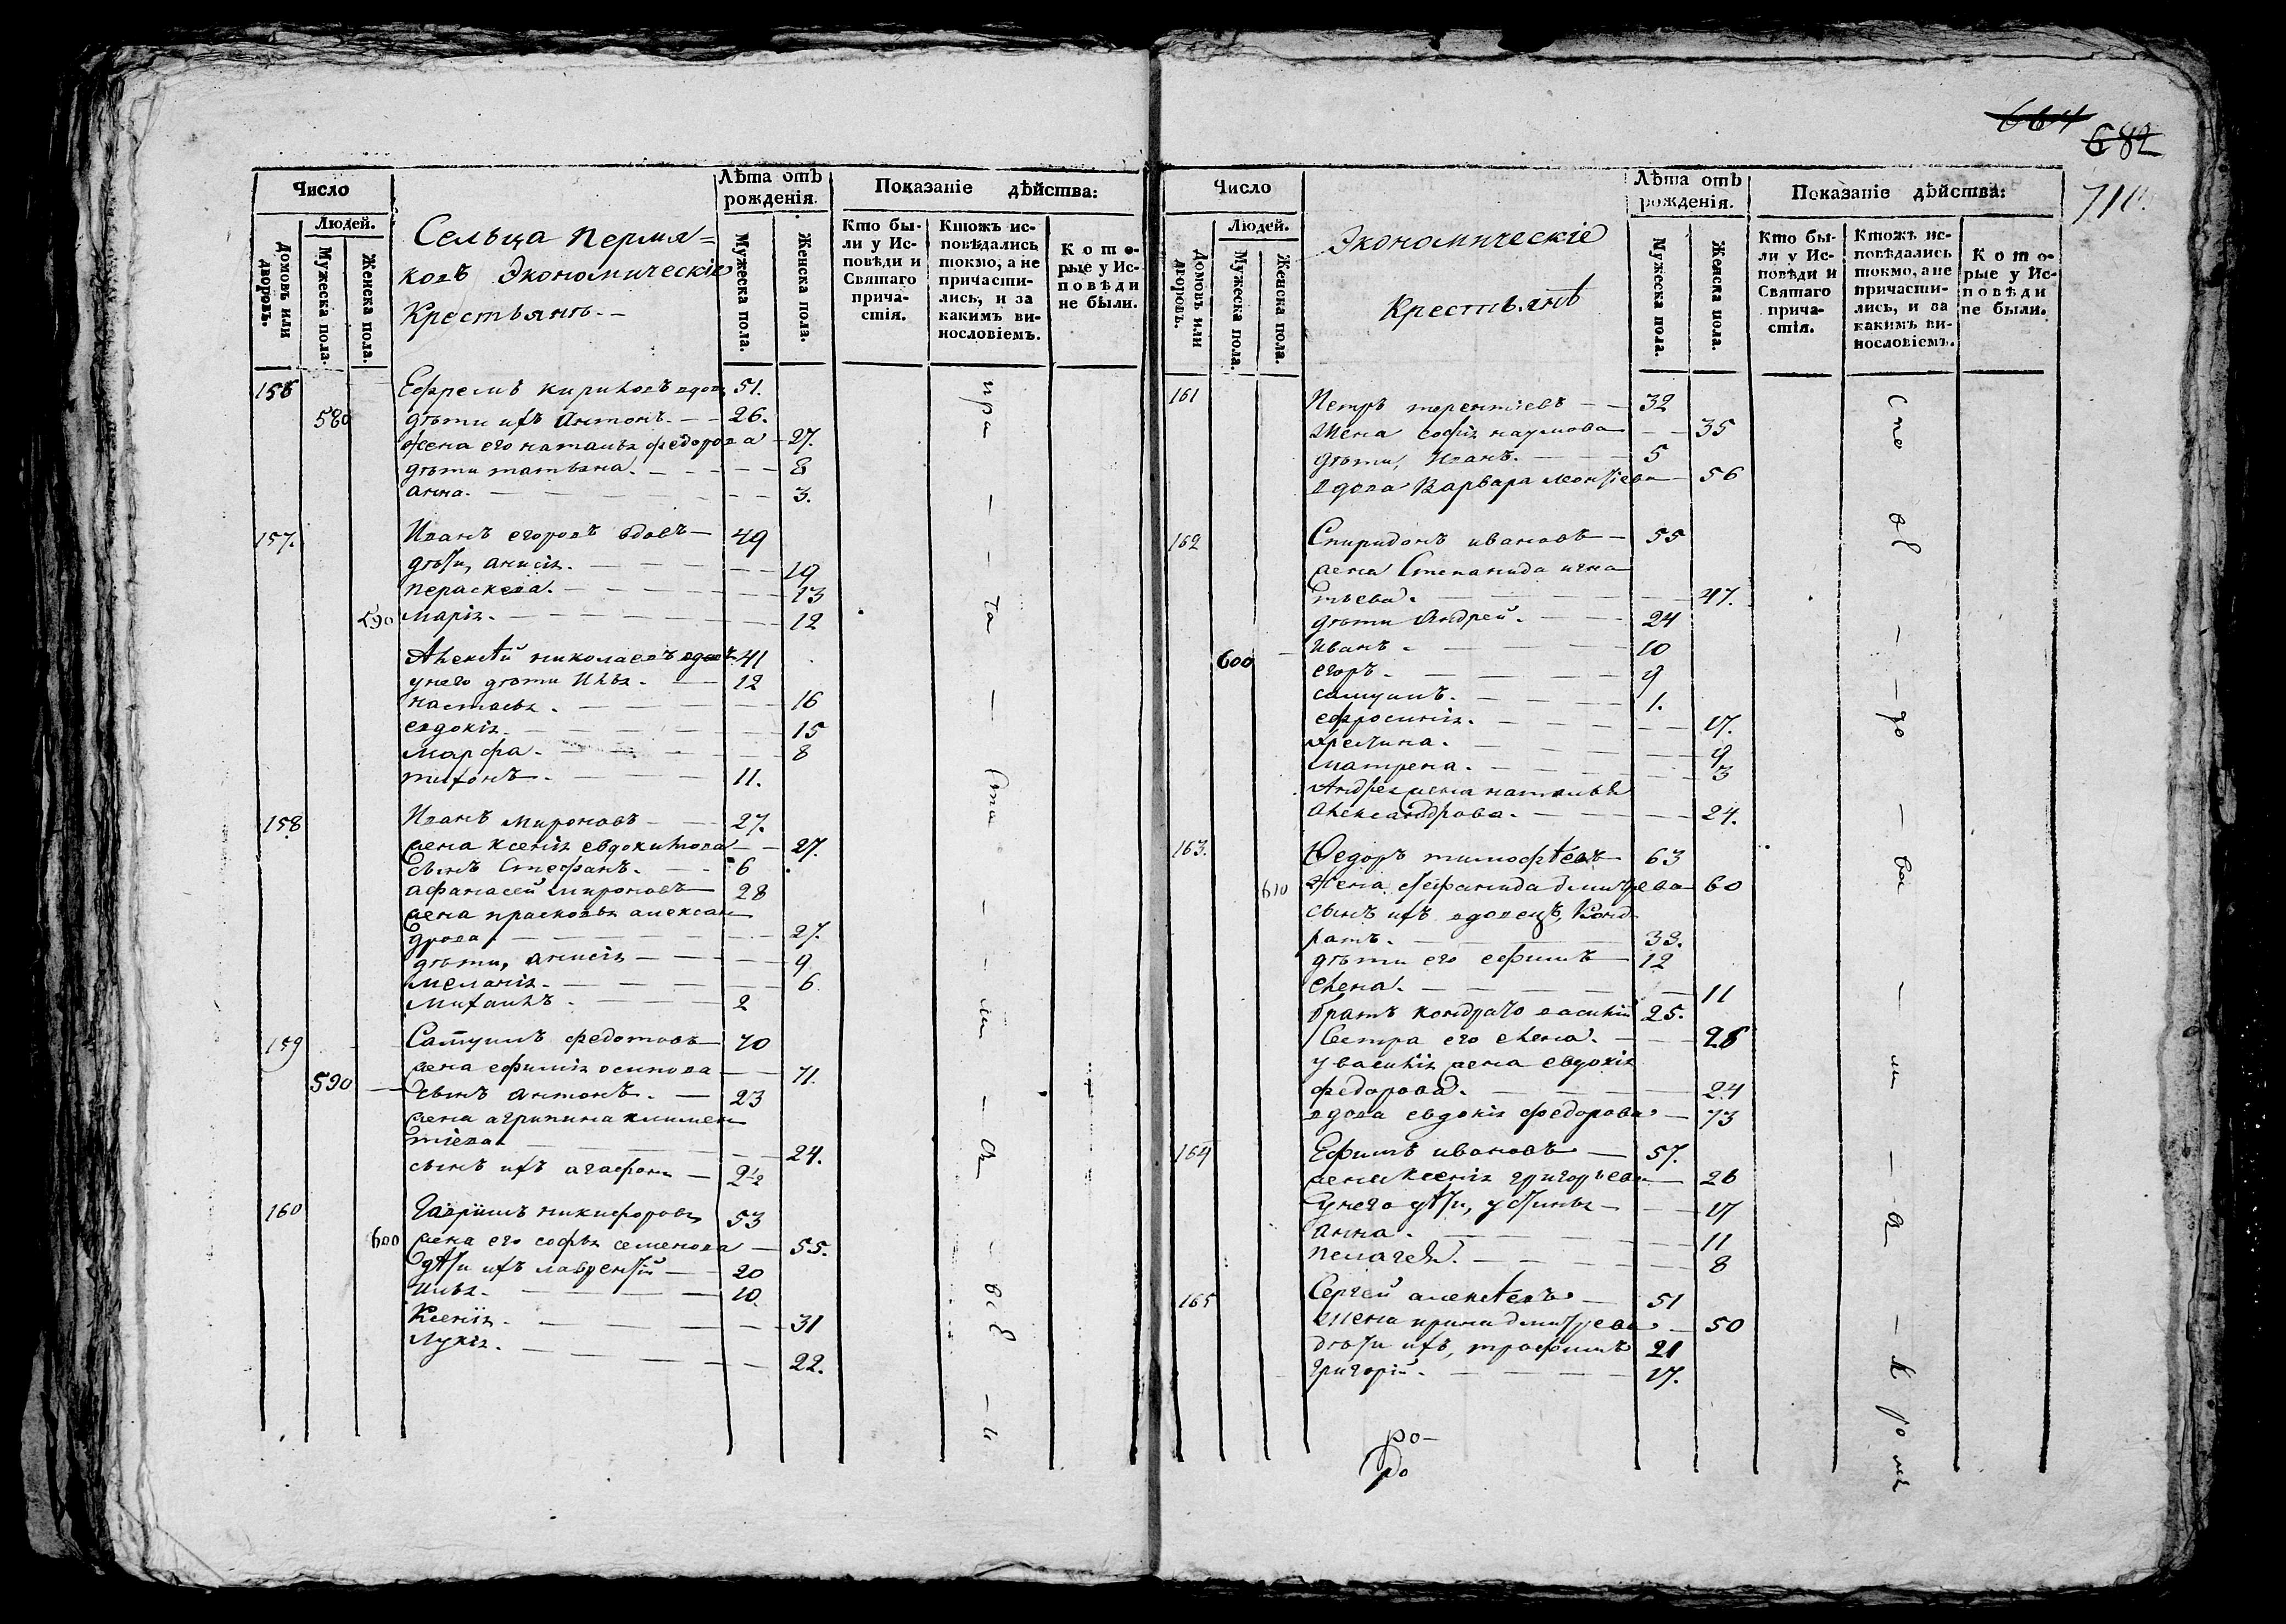 664
682
710.
Число
Людей.
Домовъ или дворовъ.
Мужеска пола.
Женска пола.
Сельца Пермя=
ковъ Экономическіе
Крестьянѣ.-
Лѣта отъ рожденія.
Мужеска пола.
Женска пола.
Показаніе дѣйства:
Кто бы-
ли у Ис-
повѣди и
Святаго
прича-
стія.
Ктожъ ис-
повѣдались
токмо, а не
причасти-
лись, и за
какимъ ви-
нословіемъ.
Кото-
рые у Ис-
повѣди
не были.
156 Ефремъ кириловъ вдов 51.
580 дѣти ихъ Антонъ. 26.
жена его наталья федорова 27.
дѣти татьяна. 8
анна. 3.
157. Иванъ егоровъ вдовъ 49
дѣти, анисія. 19
пераскева. 13
590 марія. 12
Алексѣй николаевъ вдовъ 41
у него дѣти Илья. 12
настасья. 16
евдокія. 15
марфа. 8
тихонъ. 11.
158. Иванъ мироновъ 27.
жена ксенія евдокимова 27.
сынъ Стефанъ. 6
афанасей мироновъ 28
жена прасковья алексан
дрова. 27.
дѣти, анисія 9
меланія. 6
михаилъ. 2
159 Самуилъ федотовъ 70
жена ефимія осипова 71.
590 сынъ антонъ. 23
жена агрипина климен
тіева 24.
сынъ ихъ агафонъ 2½
160 Гавриилъ никифоровъ 53
600 жена его софья семенова 55.
дѣти ихъ лаврентій 20
илья. 10.
Ксенія. 31
Лукія. 22.
пра - - та - ста - - ли - а - всѣ - и
Число
Людей.
Домовъ или дворовъ.
Мужеска пола.
Женска пола.
Экономическіе
Крестьянѣ
Лѣта отъ рожденія.
Мужеска пола.
Женска пола.
Показаніе дѣйства:
Кто бы-
ли у Ис-
повѣди и
Святаго
прича-
стія.
Ктожъ ис-
повѣдались
токмо, а не
причасти-
лись, и за
какимъ ви-
нословіемъ.
Кото-
рые у Ис-
повѣди
не были.
161 Петръ терентіевъ 32
Жена софія наумова 35
дѣти, Иванъ. 5
вдова Варвара леонтіева 56
162 Спиридонъ ивановъ 55
жена Степанида игна
тьева. 47.
дѣти Андрей. 24
иванъ. 10
600 егоръ. 9
самуилъ. 1.
ефросинія. 17.
9
матрена. 3
Андрея жена наталья
александрова. 24.
163. Федоръ тимофѣевъ 63
610 Жена стефанида дмитрева 60
сынъ ихъ вдовецъ, Конд
ратъ. 33.
дѣти его ефимъ 12
елена. 11
братъ кондрато василій 25.
Сестра его елена. 26
у василія жена евдокія
федорова. 24
вдова евдокія федорова 73
164 Ефимъ ивановъ 57.
жена ксенія григорьева 26
у него дѣти, устинья 17
анна. 11
пелагея. 8
165 Сергей алексѣевъ 51
Жена ирина дмитрева 50
дѣти ихъ, трофимъ 21
григорій. 17.
сте - - до - ва - ли - а - кромѣ
ро-
до